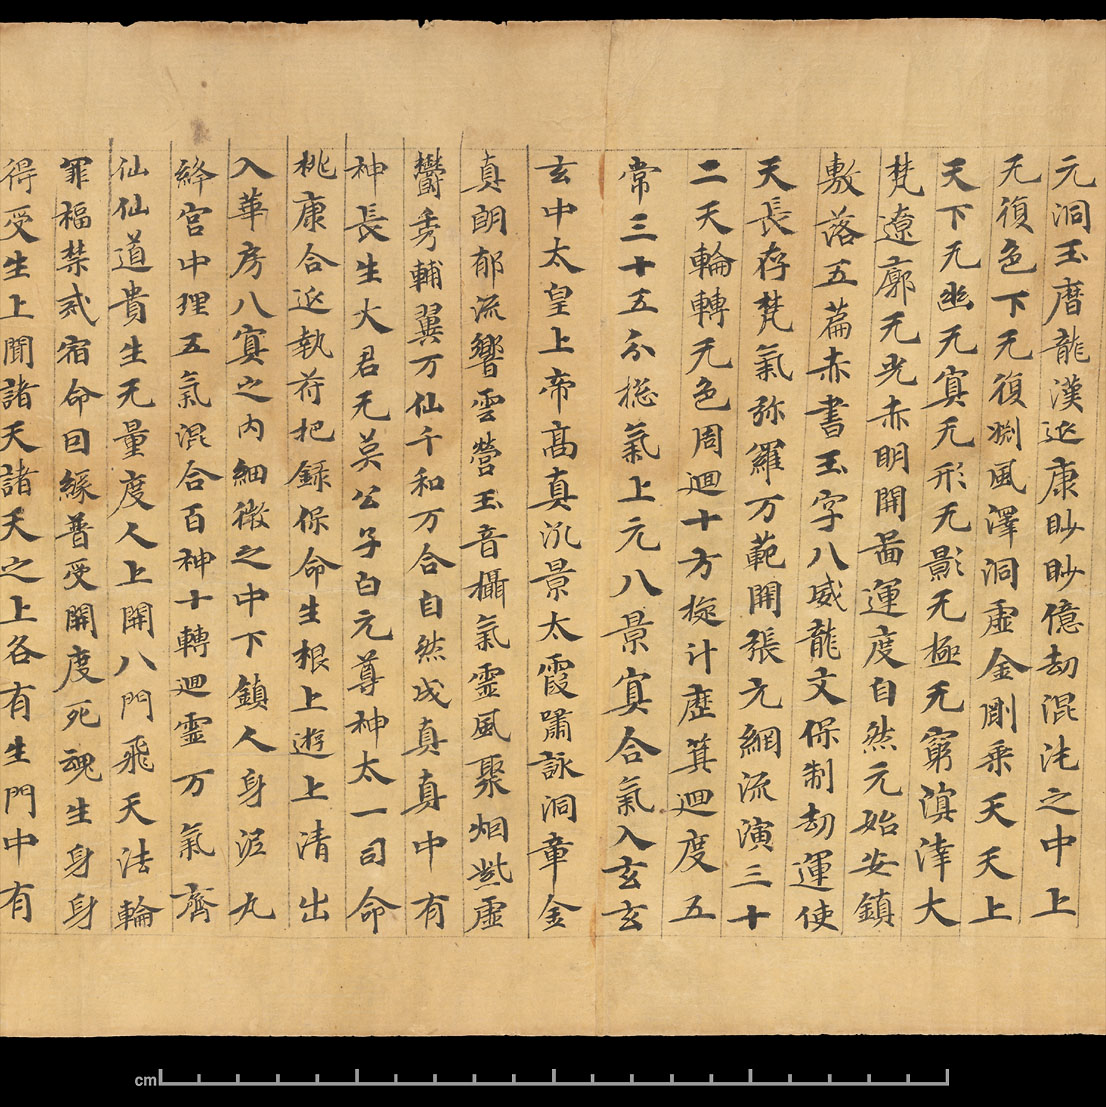 元洞玉曆龍漢延康眇眇億劫混沌之中上
无復色下无復渊風澤洞虛金剛乘天天上
天下无幽无冥无形无影无極无窮溟涬大
梵遼廓无光赤明開啚運度自然元始安鎮
敷落五篇赤書玉字八威龍文保制劫運使
天長存梵氣弥羅万範開張元綱流演三十
二天輪轉无色周迴十方旋计歷箕迴度五
常三十五分揔氣上元八景冥合氣入玄玄
玄中太皇上帝高真汎景太霞嘯詠洞章金
真朗郁流響雲營玉音攝氣靈風聚烟紫虛
鬱秀輔翼万仙千和万合自然成真真中有
神長生大君无英公子白元尊神太一司命
桃康合延執苻把錄保命生根上遊上清出
入華房八冥之内細微之中下鎮人身泥丸
絳宮中理五氣混合百神十轉迴靈万氣齊
仙仙道貴生无量度人上開八門飛天法輪
罪福禁戒宿命因緣普受開度死魂生身身
得受生上聞諸天諸天之上各有生門中有
cm